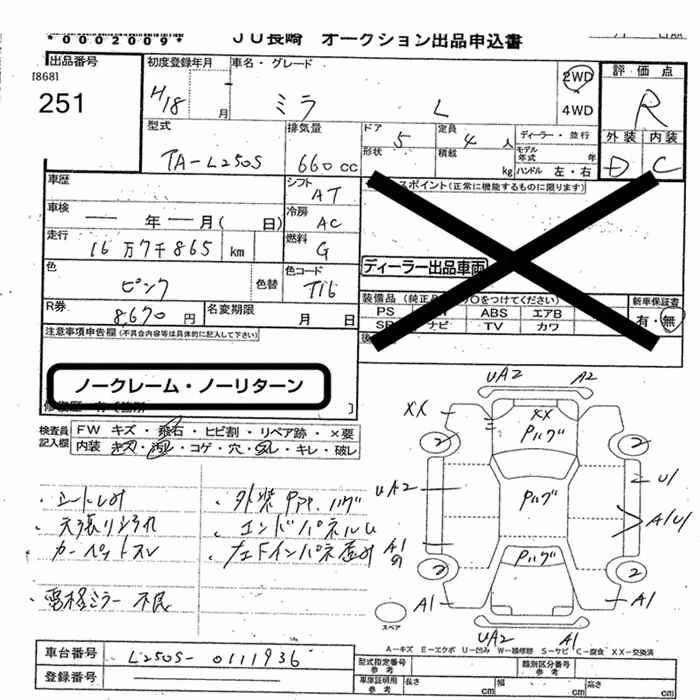 *0002009*
JU長崎 オークション出品申込書
出品番号
[868]
251
初度登録年月
H18 月
車名・グレード
ミラ L
2WD
4WD
評価点
R
外装 内装
D C
型式
TA-L250S
排気量
660 cc
ドア 5
形状
定員 4 人
積載 kg
ディーラー・並行
モデル年式 年
ハンドル 左・右
車歴
シフト AT
車検
— 年 — 月( 日)
冷房 AC
走行
16万7千865 km
燃料 G
色
ピンク 色替
色コード T16
R券
8,670 円
名変期限 月 日
スポイント(正常に機能するものに限ります)
ディーラー出品車両
装備品
○をつけてください)
PS
ABS エアB
ナビ TV カワ
新車保証書
有・無
注意事項申告欄(不具合内容等は具体的に記入して下さい)
ノークレーム・ノーリターン
検査員記入欄
FW キズ・飛石・ヒビ割・リペア跡・×要
内装・キズ・汚レ・コゲ・穴・スレ・キレ・破レ
・シートしみ
・天張りよごれ
カーペットスレ
・電格ミラー不良
・外装 Pハゲ
・エンドパネルU
・左Fインパネ歪み
UA2 A2
XX XX
Pハゲ
2 2
UA2 Pハゲ U1
A1U1
A1
Pハゲ
2 2
A1 A1
UA2 A1
スペア
A-キズ E-エクボ U-凹み W-補修跡 S-サビ C-腐食 XX-交換済
車台番号
L250S-0111936
登録番号
型式指定番号 参考
類別区分番号 参考
車庫証明用 参考
長さ cm 幅 cm 高さ cm